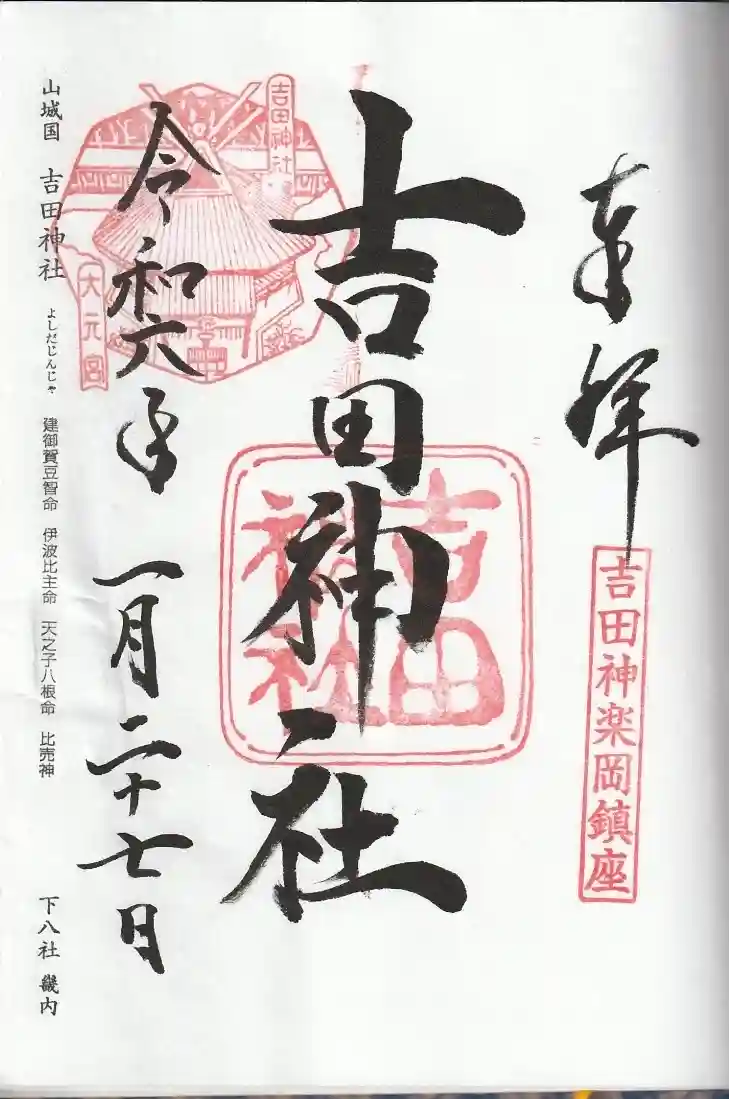 奉拝
吉田神楽岡鎮座
吉田神社
吉田
神社
令和六年 一月二十七日
吉田神社
大元宮
山城国 吉田神社 よしだじんじゃ 建御賀豆智命 伊波比主命 天之子八根命 比売神 下八社 畿内